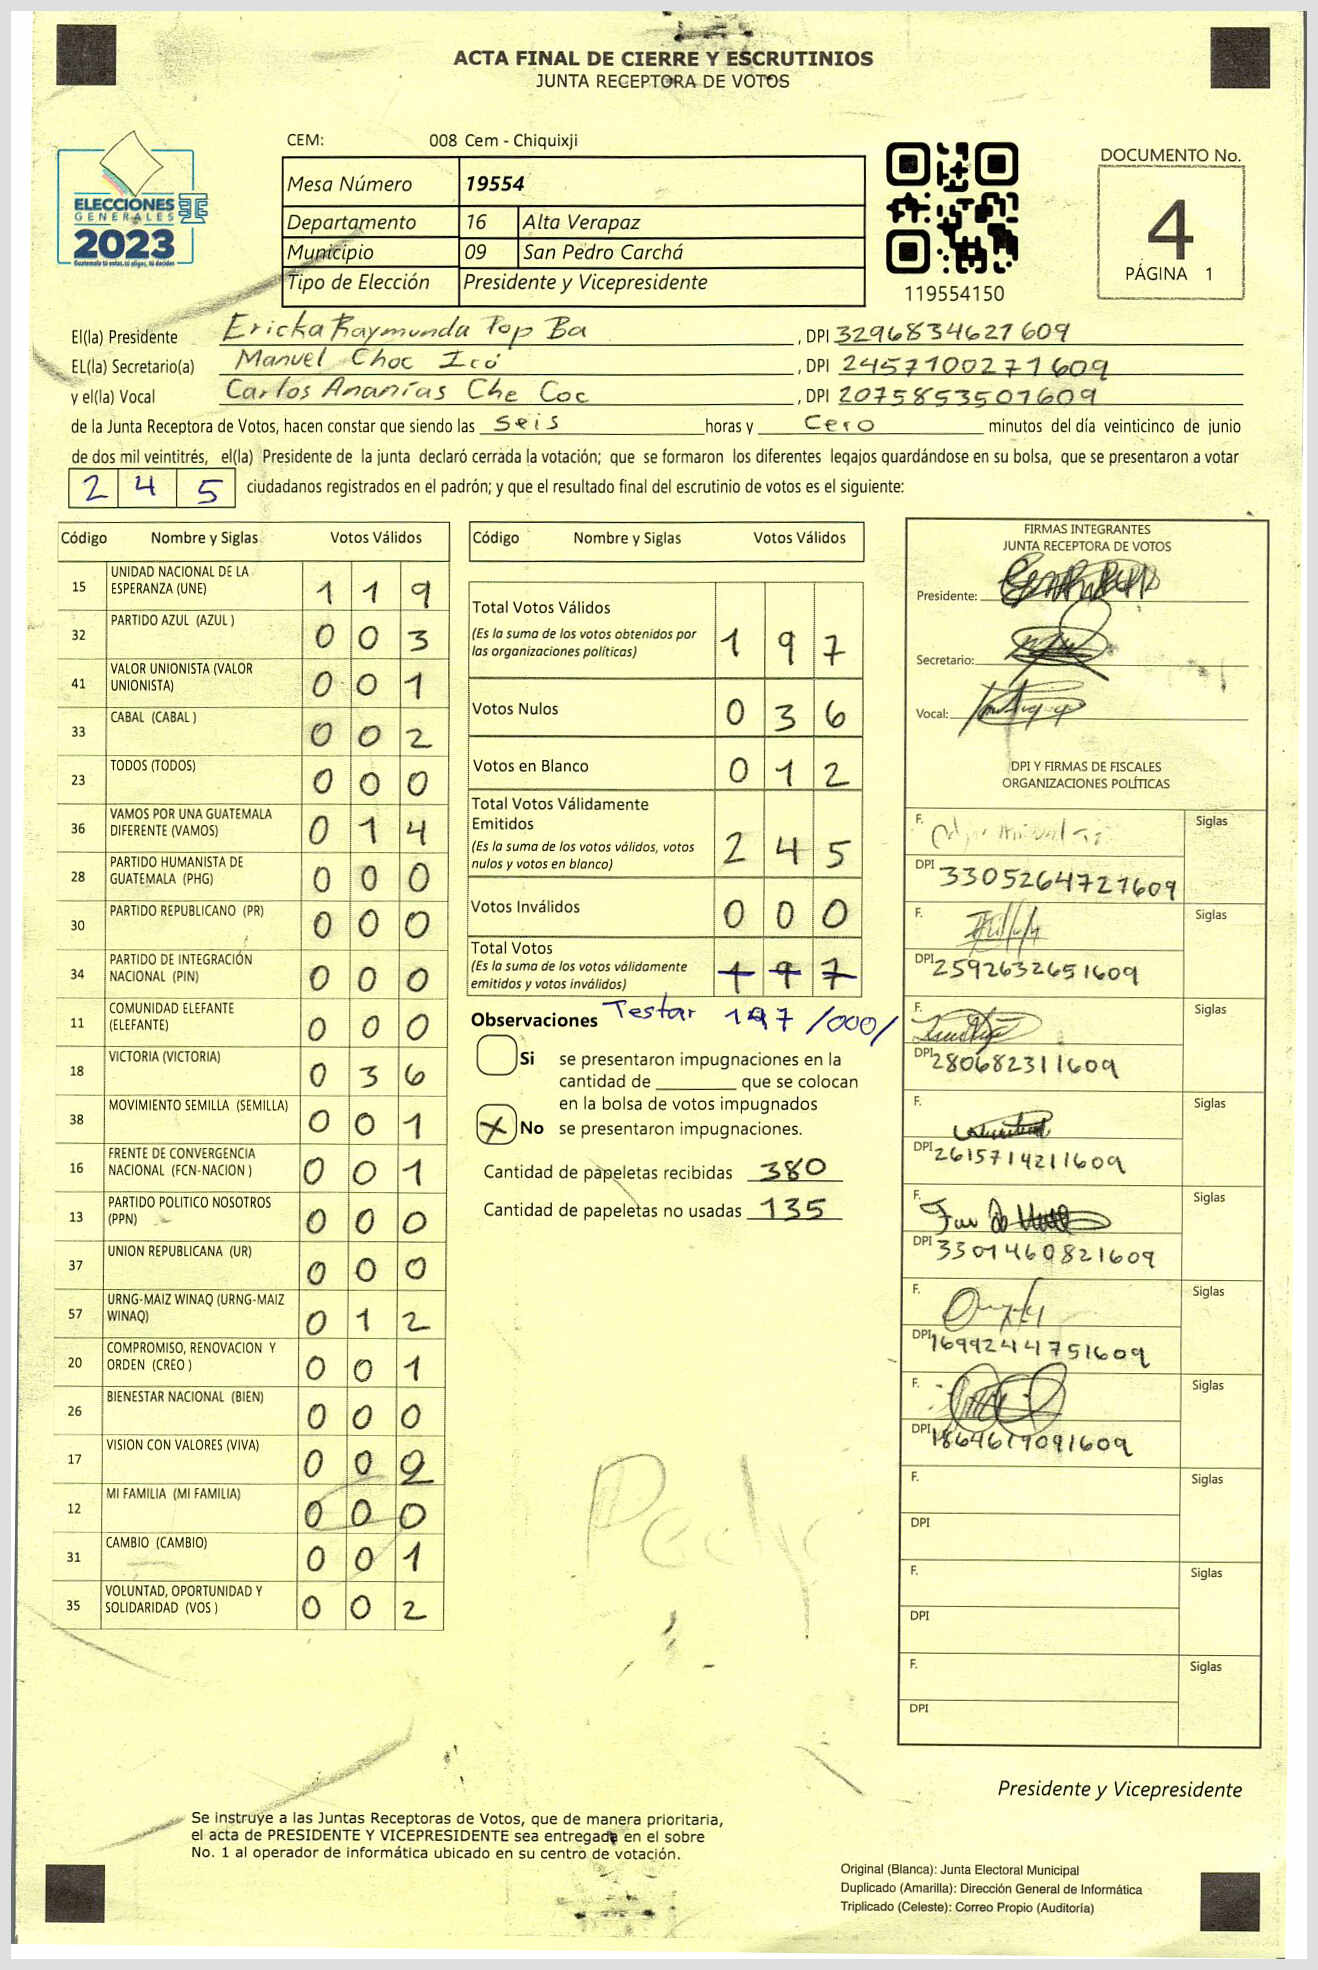 ACTA FINAL DE CIERRE Y ESCRUTINIOS
JUNTA RECEPTORA DE VOTOS
ELECCIONES
GENERALES
2023
Guatemala tú votas, tú eliges, tú decides
CEM: 008 Cem - Chiquixji
Mesa Número 19554
Departamento 16 Alta Verapaz
Municipio 09 San Pedro Carchá
Tipo de Elección Presidente y Vicepresidente
119554150
DOCUMENTO No.
4
PÁGINA 1
El(la) Presidente Ericka Raymunda Pop Ba, DPI 3296834627609
EL(la) Secretario(a) Manuel Choc Icó, DPI 2457100271609
y el(la) Vocal Carlos Ananías Che Coc, DPI 2075853501609
de la Junta Receptora de Votos, hacen constar que siendo las seis horas y Cero minutos del día veinticinco de junio
de dos mil veintitrés, el(la) Presidente de la junta declaró cerrada la votación; que se formaron los diferentes legajos guardándose en su bolsa, que se presentaron a votar
245 ciudadanos registrados en el padrón; y que el resultado final del escrutinio de votos es el siguiente:
Código Nombre y Siglas Votos Válidos
15 UNIDAD NACIONAL DE LA ESPERANZA (UNE) 119
32 PARTIDO AZUL (AZUL ) 003
41 VALOR UNIONISTA (VALOR UNIONISTA) 001
33 CABAL (CABAL ) 002
23 TODOS (TODOS) 000
36 VAMOS POR UNA GUATEMALA DIFERENTE (VAMOS) 014
28 PARTIDO HUMANISTA DE GUATEMALA (PHG) 000
30 PARTIDO REPUBLICANO (PR) 000
34 PARTIDO DE INTEGRACIÓN NACIONAL (PIN) 000
11 COMUNIDAD ELEFANTE (ELEFANTE) 000
18 VICTORIA (VICTORIA) 036
38 MOVIMIENTO SEMILLA (SEMILLA) 001
16 FRENTE DE CONVERGENCIA NACIONAL (FCN-NACION ) 001
13 PARTIDO POLITICO NOSOTROS (PPN) 000
37 UNION REPUBLICANA (UR) 000
57 URNG-MAIZ WINAQ (URNG-MAIZ WINAQ) 012
20 COMPROMISO, RENOVACION Y ORDEN (CREO ) 001
26 BIENESTAR NACIONAL (BIEN) 000
17 VISION CON VALORES (VIVA) 00
12 MI FAMILIA (MI FAMILIA) 000
31 CAMBIO (CAMBIO) 001
35 VOLUNTAD, OPORTUNIDAD Y SOLIDARIDAD (VOS ) 002
Código Nombre y Siglas Votos Válidos
Total Votos Válidos 197
(Es la suma de los votos obtenidos por
las organizaciones políticas)
Votos Nulos 036
Votos en Blanco 012
Total Votos Válidamente
Emitidos 245
(Es la suma de los votos válidos, votos
nulos y votos en blanco)
Votos Inválidos 000
Total Votos 197
(Es la suma de los votos válidamente
emitidos y votos inválidos)
Observaciones Testar 197 /000/
Si se presentaron impugnaciones en la
cantidad de ________ que se colocan
en la bolsa de votos impugnados
X No se presentaron impugnaciones.
Cantidad de papeletas recibidas 380
Cantidad de papeletas no usadas 135
Pedro
FIRMAS INTEGRANTES
JUNTA RECEPTORA DE VOTOS
Presidente:
Secretario:
Vocal:
DPI Y FIRMAS DE FISCALES
ORGANIZACIONES POLÍTICAS
F. Siglas
DPI 3305264727609
F. Siglas
DPI 2592632651609
F. Siglas
DPI 280682311609
F. Siglas
DPI 2615714211609
F. Siglas
DPI 3301460821609
F. Siglas
DPI 1699244751609
F. Siglas
DPI 1864617091609
F. Siglas
DPI
F. Siglas
DPI
F. Siglas
DPI
Presidente y Vicepresidente
Se instruye a las Juntas Receptoras de Votos, que de manera prioritaria,
el acta de PRESIDENTE Y VICEPRESIDENTE sea entregada en el sobre
No. 1 al operador de informática ubicado en su centro de votación.
Original (Blanca): Junta Electoral Municipal
Duplicado (Amarilla): Dirección General de Informática
Triplicado (Celeste): Correo Propio (Auditoría)